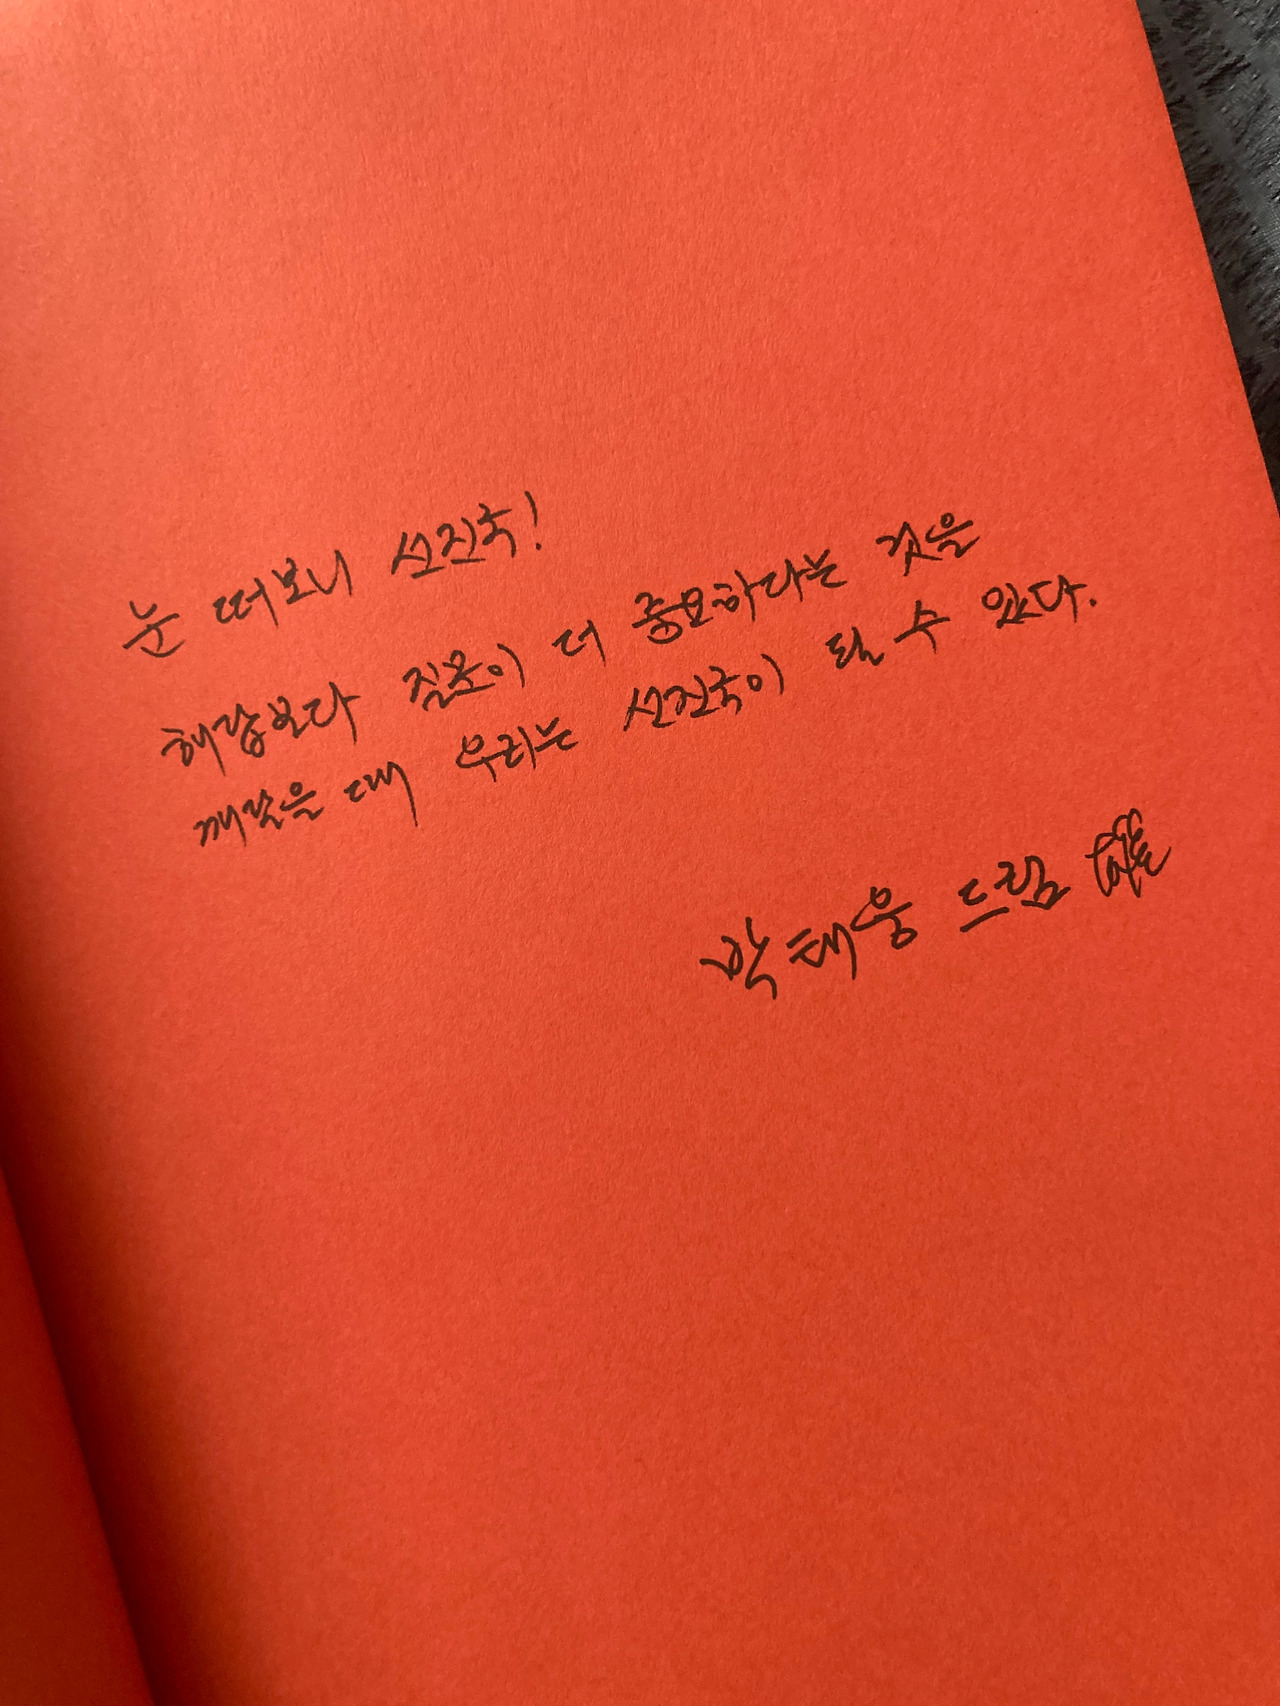 눈 떠보니 선진국!
해답보다 질문이 더 중요하다는 것을
깨달을 때 우리는 선진국이 될 수 있다.
박태웅 드림